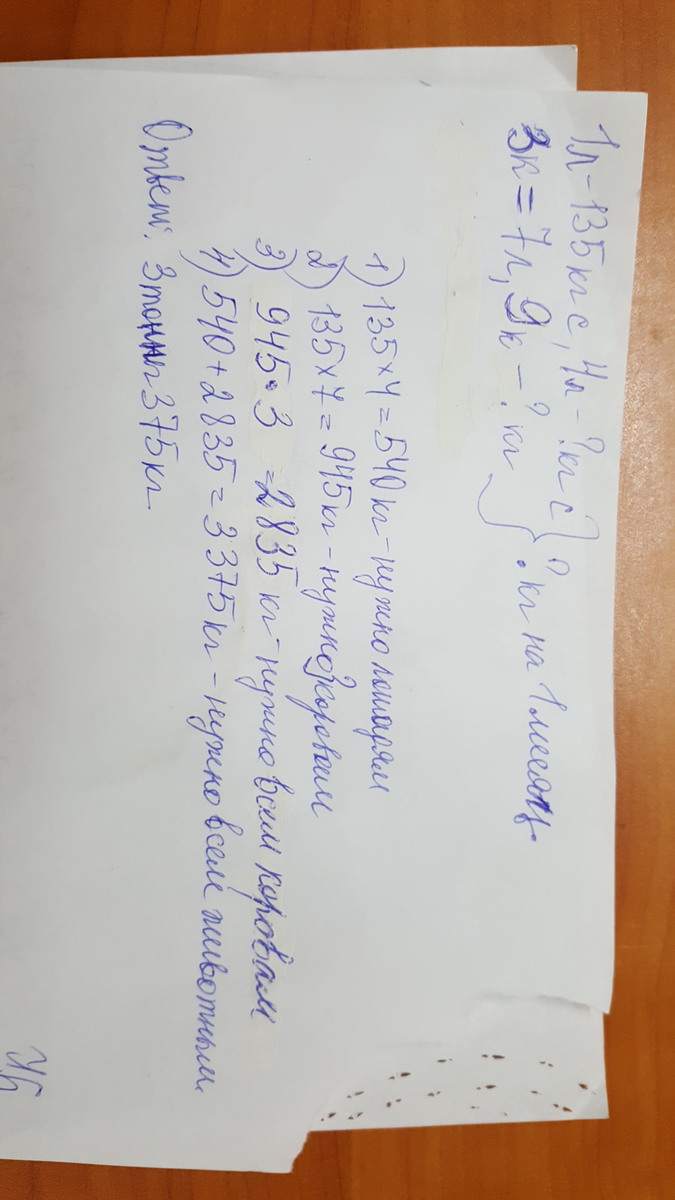 1л-135кг с, 4л-?кг с } ?кг на 1 месяц.
3к=7л, 9к-?кг
1) 135×4=540кг-нужно лошадям
2) 135×7=945кг-нужно 3 коровам
3) 945·3=2835 кг-нужно всем коровам
4) 540+2835=3375кг-нужно всем животным.
Ответ: 3 тонны 375кг